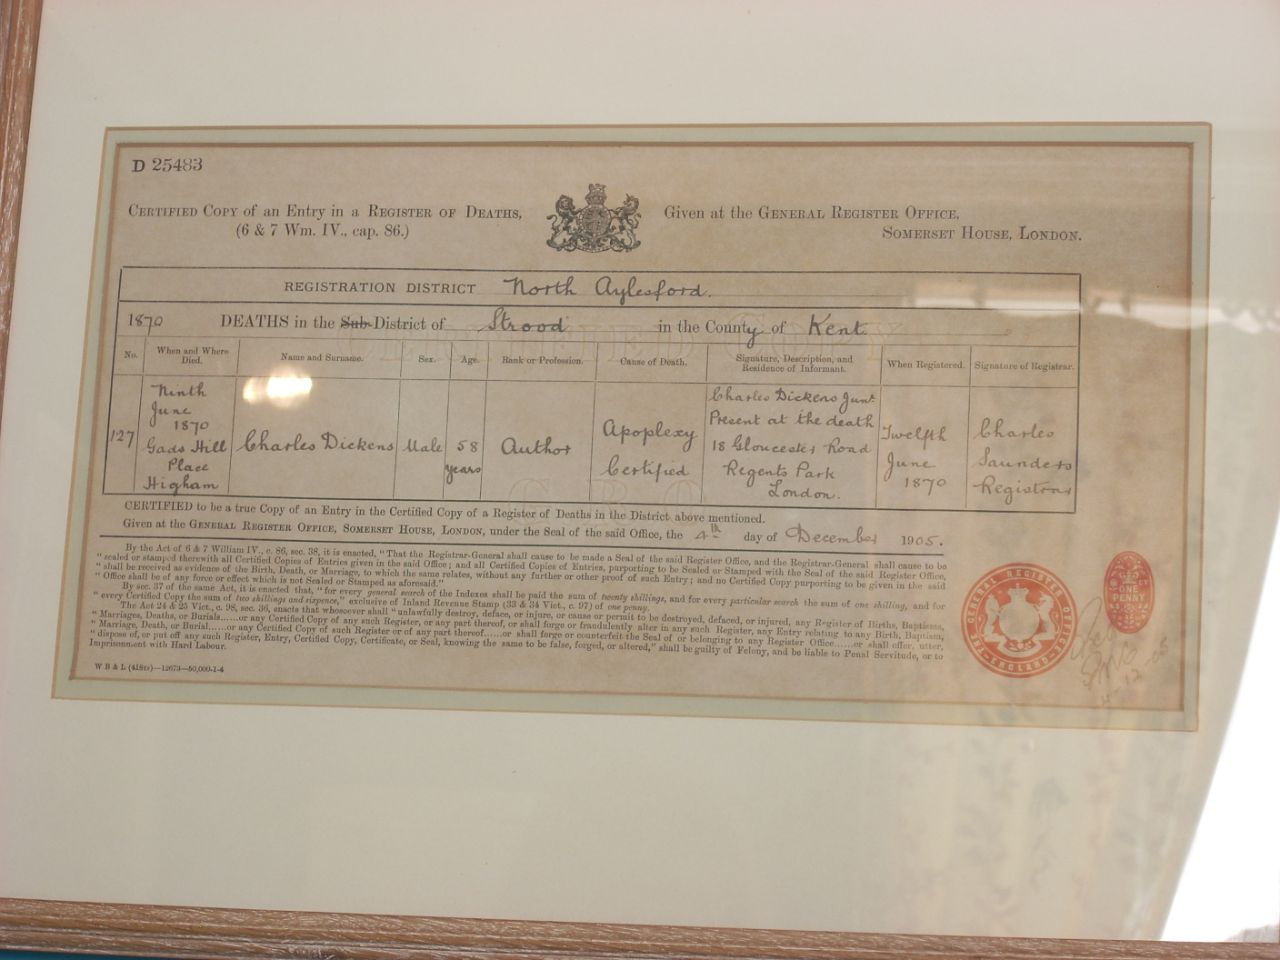 D 25483
CERTIFIED COPY of an Entry in a REGISTER OF DEATHS,
(6 & 7 Wm. IV., cap. 86.)
Given at the GENERAL REGISTER OFFICE,
SOMERSET HOUSE, LONDON.
REGISTRATION DISTRICT North Aylesford.
1870 DEATHS in the Sub-District of Strood in the County of Kent
No. When and Where Died. Name and Surname. Sex. Age. Rank or Profession. Cause of Death. Signature, Description, and Residence of Informant. When Registered. Signature of Registrar.
127
Ninth
June
1870
Gads Hill
Place
Higham
Charles Dickens
Male
58
years
Author
Apoplexy
Certified
Charles Dickens Junr
Present at the death
18 Gloucester Road
Regents Park
London.
Twelfth
June
1870
Charles
Saunders
Registrar
CERTIFIED to be a true Copy of an Entry in the Certified Copy of a Register of Deaths in the District above mentioned.
Given at the GENERAL REGISTER OFFICE, SOMERSET HOUSE, LONDON, under the Seal of the said Office, the 4th day of December 1905.
By the Act of 6 & 7 William IV., c. 86, sec. 38, it is enacted, "That the Registrar-General shall cause to be made a Seal of the said Register Office, and the Registrar-General shall cause to be
"sealed or stamped therewith all Certified Copies of Entries given in the said Office; and all Certified Copies of Entries, purporting to be Sealed or Stamped with the Seal of the said Register Office,
"shall be received as evidence of the Birth, Death, or Marriage, to which the same relates, without any further or other proof of such Entry; and no Certified Copy purporting to be given in the said
"Office shall be of any force or effect which is not Sealed or Stamped as aforesaid."
By sec. 37 of the same Act, it is enacted that, "for every general search of the Indexes shall be paid the sum of twenty shillings, and for every particular search the sum of one shilling, and for
"every Certified Copy the sum of two shillings and sixpence," exclusive of Inland Revenue Stamp (33 & 34 Vict., c. 97) of one penny.
The Act 24 & 25 Vict., c. 98, sec. 36, enacts that whosoever shall "unlawfully destroy, deface, or injure, or cause or permit to be destroyed, defaced, or injured, any Register of Births, Baptisms,
"Marriages, Deaths, or Burials......or any Certified Copy of any such Register, or any part thereof, or shall forge or fraudulently alter in any such Register, any Entry relating to any Birth, Baptism,
"Marriage, Death, or Burial......or any Certified Copy of such Register or of any part thereof......or shall forge or counterfeit the Seal of or belonging to any Register Office......or shall offer, utter,
"dispose of, or put off any such Register, Entry, Certified Copy, Certificate, or Seal, knowing the same to be false, forged, or altered," shall be guilty of Felony, and be liable to Penal Servitude, or to
Imprisonment with Hard Labour.
GENERAL REGISTER OFFICE
ENGLAND
ONE
PENNY
4-12-05